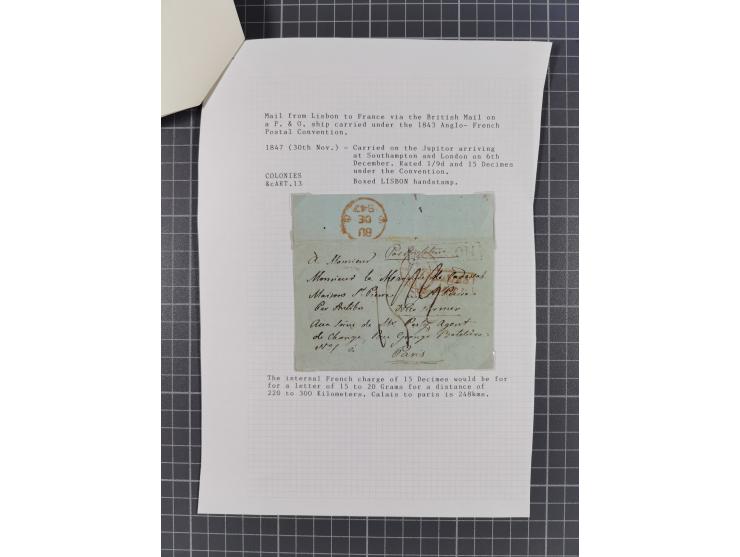 Mail from Lisbon to France via the British Mail on
a P. & O. ship carried under the 1843 Anglo- French
Postal Convention.
1847 (30th Nov.) - Carried on the Jupitor arriving
at Southampton and London on 6th
December. Rated 1/9d and 15 Decimes
under the Convention.
COLONIES
&cART.13
Boxed LISBON handstamp.
BU
DE
847
A Monsieur
Monsieur le
Maison St Pierre
Par
Aux soins de Mr Agent
de Change, Rue
No
Paris
The internal French charge of 15 Decimes would be for
for a letter of 15 to 20 Grams for a distance of
220 to 300 Kilometers. Calais to paris is 248kms.